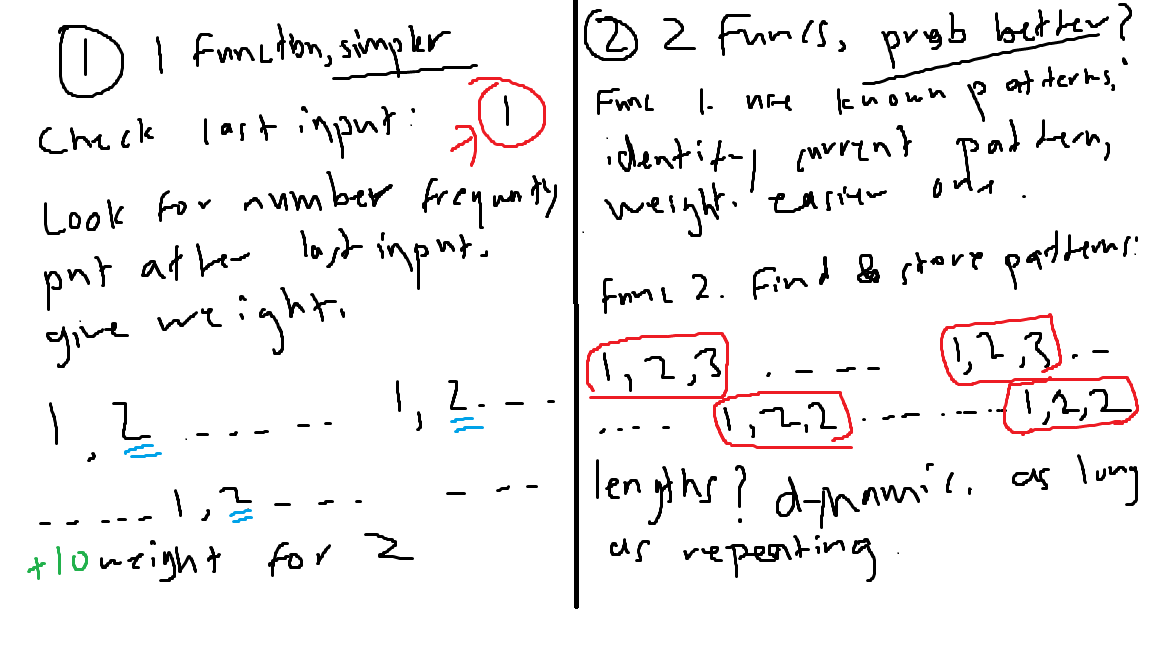 ① 1 Function, simpler
Check last input: ①
Look for number frequnty
put after last input.
give weight.
1, 2 ...... 1, 2 ...
...... 1, 2 --- ---
+10 weight for 2
② 2 Funcs, prob better?
Func 1. use known patterns,
identify current pattern,
weight. easier one.
Func 2. Find & store patterns:
1, 2, 3 . --- 1, 2, 3 . -
.... 1, 2, 2 ....... 1, 2, 2
lengths? dynamic. as long
as repeating.